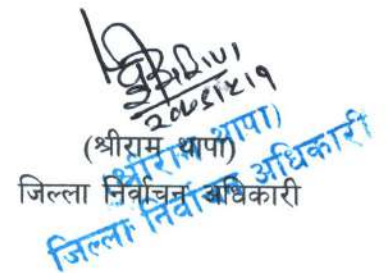 (श्रीराम थापा)
जिल्ला निर्वाचन अधिकारी
(श्रीराम थापा)
जिल्ला निर्वाचन अधिकारी